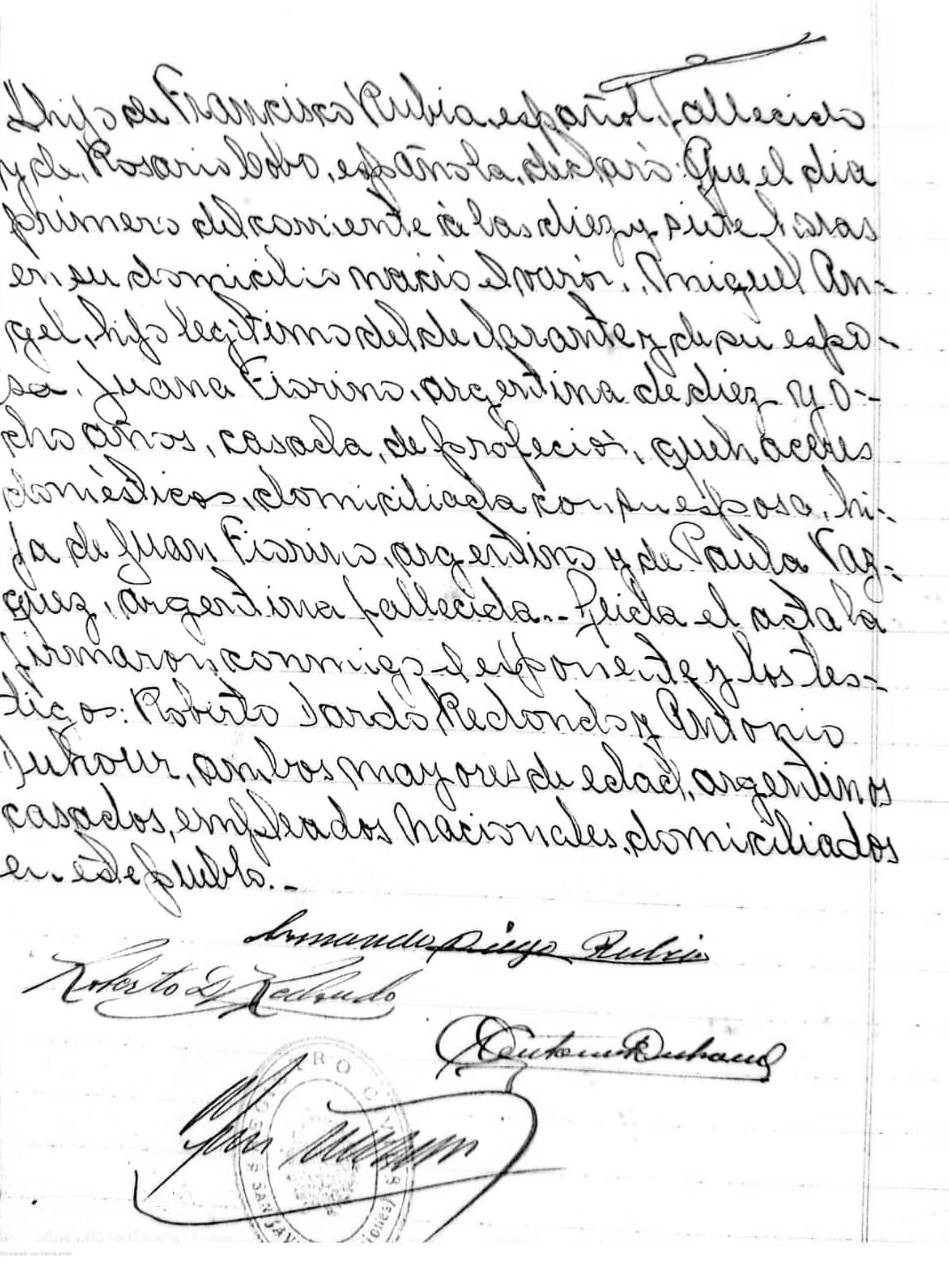 hijo de Francisco Rubia, español, fallecido
y de Rosario Cobo, española, declaró: Que el dia
primero del corriente á las diez y siete horas
en su domicilio nació el varón, Miguel An-
gel, hijo legítimo del declarante y de su espo-
sa, Juana Fiorino, argentina de diez y o-
cho años, casada, de profeción, quehaceres
domésticos, domiciliada con su esposo, hi-
ja de Juan Fiorino, argentino y de Paula Vaz-
quez, argentina fallecida.- Leida el acta la
firmaron conmigo el exponente y los tes-
tigos: Roberto Dardo Redondo y Antonio
Duhour, ambos mayores de edad, argentinos
casados, empleados nacionales, domiciliados
en este pueblo.-
Armando Diego Rubia
Roberto D. Redondo
Antonio Duhour
RO CIV
SAN JAV
iones)